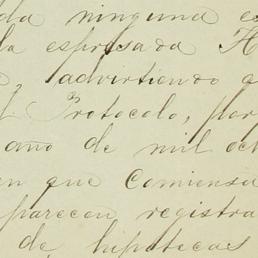 da ninguna es
la espresada H
advirtiendo q
l Protocolo, por
año de mil oc
en que Comiensa
parecen registra
de hipotecas